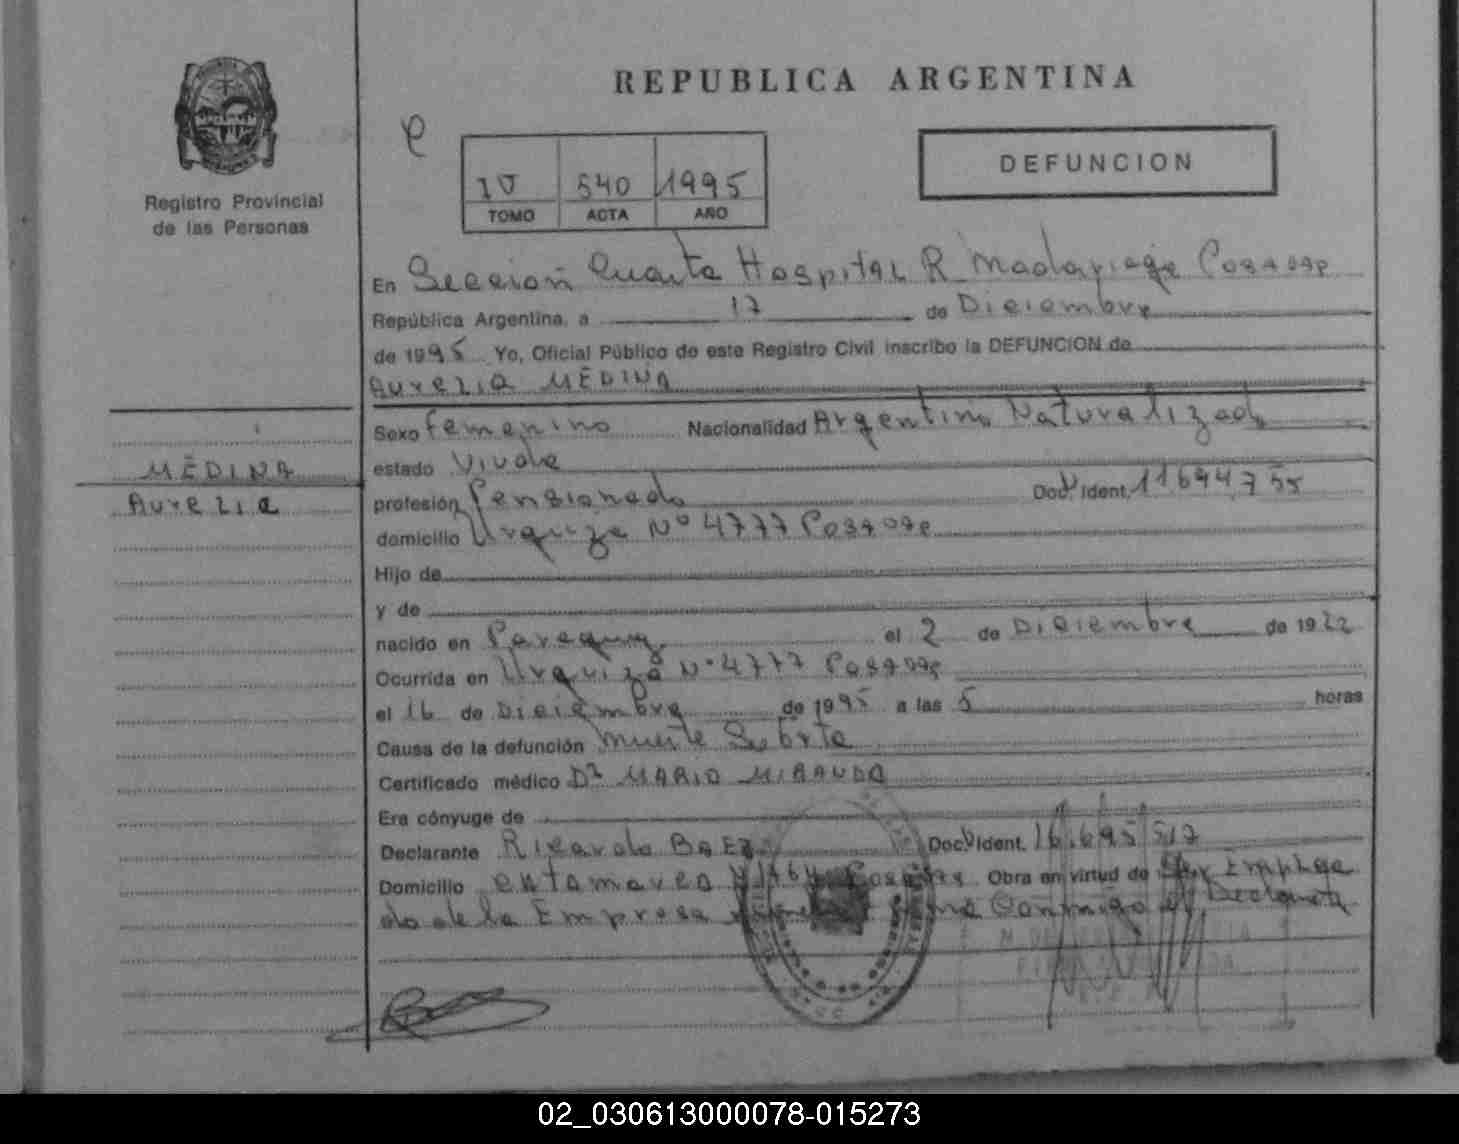 REPUBLICA ARGENTINA
Registro Provincial
de las Personas
IV 540 1995
TOMO ACTA AÑO
DEFUNCION
En Sección Cuarta Hospital R Madariaga Posadas
República Argentina, a 17 de Diciembre
de 1995 Yo, Oficial Público de este Registro Civil inscribo la DEFUNCION de
AURELIA MEDINA
Sexo femenino Nacionalidad Argentino Naturalizado
MEDINA
estado Viuda
Aurelia
profesión Pensionado Doc. Ident. 11.694.755
domicilio Urquiza Nº 4777 Posadas
Hijo de
y de
nacido en Paraguay el 2 de Diciembre de 1922
Ocurrida en Urquiza Nº 4777 Posadas
el 16 de Diciembre de 1995 a las 5 horas
Causa de la defunción Muerte Subita
Certificado médico Dr MARIO MIRANDA
Era cónyuge de
Declarante Ricardo BAEZ Doc. Ident. 16.695.517
Domicilio Posadas Obra en virtud de Ser Emplea
do de la Empresa Conmigo el Declarante
02_030613000078-015273